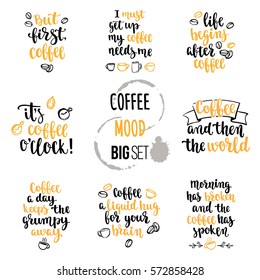 But
first,
coffee
I must
get up
my coffee
needs me
life
begins
after
coffee
it's
coffee
o'clock!
COFFEE
MOOD
BIG SET
Coffee
and then
the world
Coffee
a day
keeps the
grumpy
away
Coffee
a liquid hug
for your
brain
Morning
has broken
and the
coffee has
spoken
shutterstock
IMAGE ID: 572858428
www.shutterstock.com